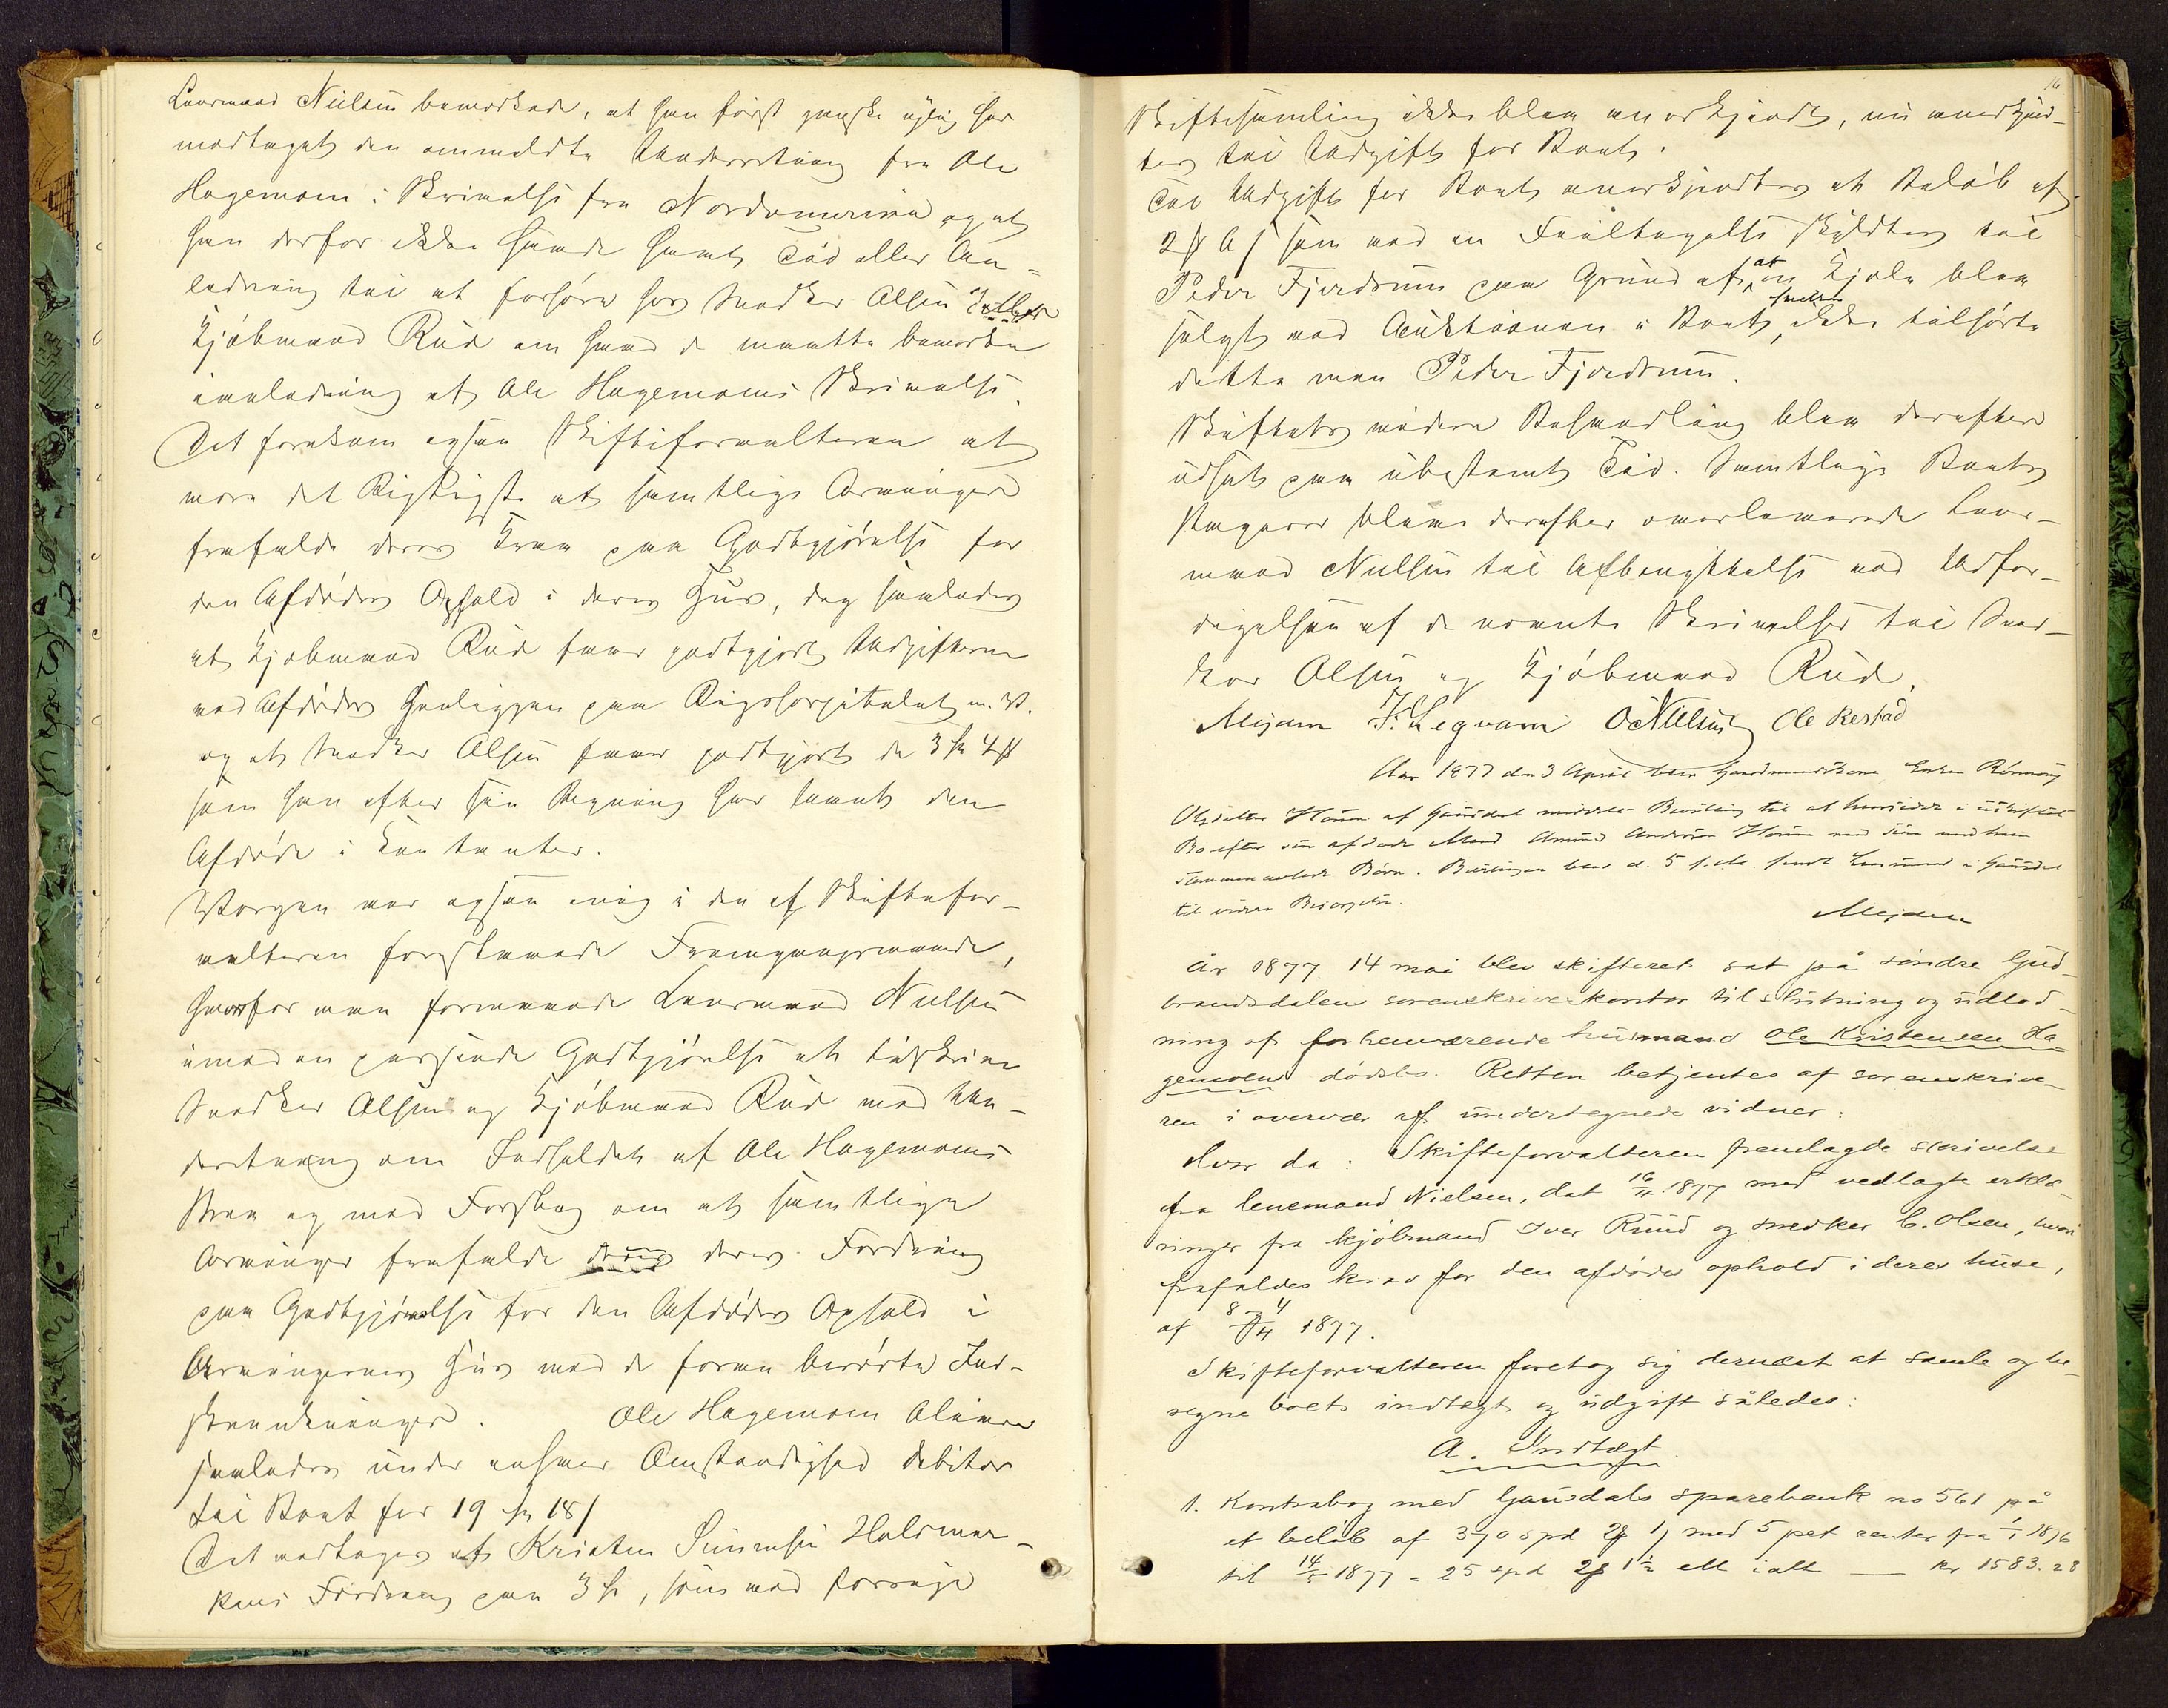 Lensmand Nielsen bemærkede, at han først ganske nylig har
modtaget den ommeldte Underretning fra Ole
Hagemoen i Skrivelse fra Nordamerika og at
han derfor ikke havde havt Tid eller An-
ledning til at forhøre hos Snedker Olsen
Kjøbmand Rud om hvad de maatte bemærke
i anledning af Ole Hagemoens Skrivelse.
Det forekom ogsaa Skifteforvalteren at
være det Rigtigste at samtlige Arvinger
frafalde deres Krav paa Godtgjørelse for
den Afdødes Ophold i deres Hus, dog saaledes
at Kjøbmand Rud faar godtgjort Udgifterne
ved Afdødes Henliggen paa Rigshospitalet m. V.
og at Snedker Olsen faar godtgjort de 3 Sp 4
som han efter sin Regning har laant den
Afdøde i Kontanter.
Værgen var ogsaa enig i den af Skiftefor-
valteren foreslaaede Fremgangsmaade,
hvorfor man formaaede Lensmand Nielsen
imod en passende Godtgjørelse at tilskrive
Snedker Olsen og Kjøbmand Rud med Un-
derretning om Indholdet af Ole Hagemoens
Brev og med Forslag om at samtlige
Arvinger frafalde deres Fordring
paa Godtgjørelse for den Afdødes Ophold i
Arvingernes Hus med de foran berørte Ind-
skrænkninger. Ole Hagemoen bliver
saaledes under enhver Omstændighed debitor
til Boet for 19 Sp 18
Det vedtages at Kristen Simensen Holsmar-
kens Fordring paa 3 Sp, som ved forrige
16
Skiftesamling ikke blev anerkjendt, nu anerkjend-
tes til Udgift for Boet.
Til Udgift for Boet anerkjendtes et Beløb af
2 6 som ved en Feiltagelse skyldtes til
Peder Fjerdrum paa Grund af at en Kjole blev
solgt ved Auktionen i Boet, ikke tilhørte
dette men Peder Fjerdrum.
Skiftets videre Behandling blev derefter
udsat paa ubestemt Tid. Samtlige Boets
Papirer bleve derefter overleverede Lens-
mand Nielsen til Afbenyttelse ved Udfær-
digelsen af de nævnte Skrivelser til Sned-
ker Olsen og Kjøbmand Rud.
Mejdem F. Segnam O Nielsen Ole Restad
Aar 1877 den 3 April blev Gaardmandskone Enken Rønnaug
Olsdatter Houm af Gausdal meddelt Bevilling til at hensidde i uskiftet
Bo efter sin afdøde Mand Amund Andersen Houm med sine med ham
sammenavlede Børn. Bevillingen blev d. 5 s. M. sendt Lensmand i Gausdal
til videre Besørgelse.
Mejdem
År 1877 14 mai blev skifteret sat på søndre Gud-
brandsdalens sorenskriverkontor til slutning og udlod-
ning af forhenværende husmand Ole Kristensen Ha-
gemoens dødsbo. Retten betjentes af sorenskrive-
ren i overvær af undertegnede vidner:
Hvor da: Skifteforvalteren fremlagde skrivelse
fra lensmand Nielsen, dat 16/4 1877 med vedlagte erklæ-
ringer fra kjøbmand Iver Ruud og snedker C. Olsen, hvori
frafaldes krav for den afdødes ophold i deres huse,
af 8 og 4/4 1877.
Skifteforvalteren foretog sig dernæst at samle og be-
regne boets indtægt og udgift således:
A. Indtægt
1. Kontrabog med Gausdals sparebank no 561 på
et beløb af 370 spd 2 1 med 5 pct renter fra 1/1 1876
til 14/5 1877 = 25 spd 2 1½ ell ialt — kr 1583.28